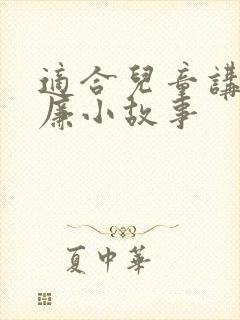 適合兒童講
廉小故事
夏中華